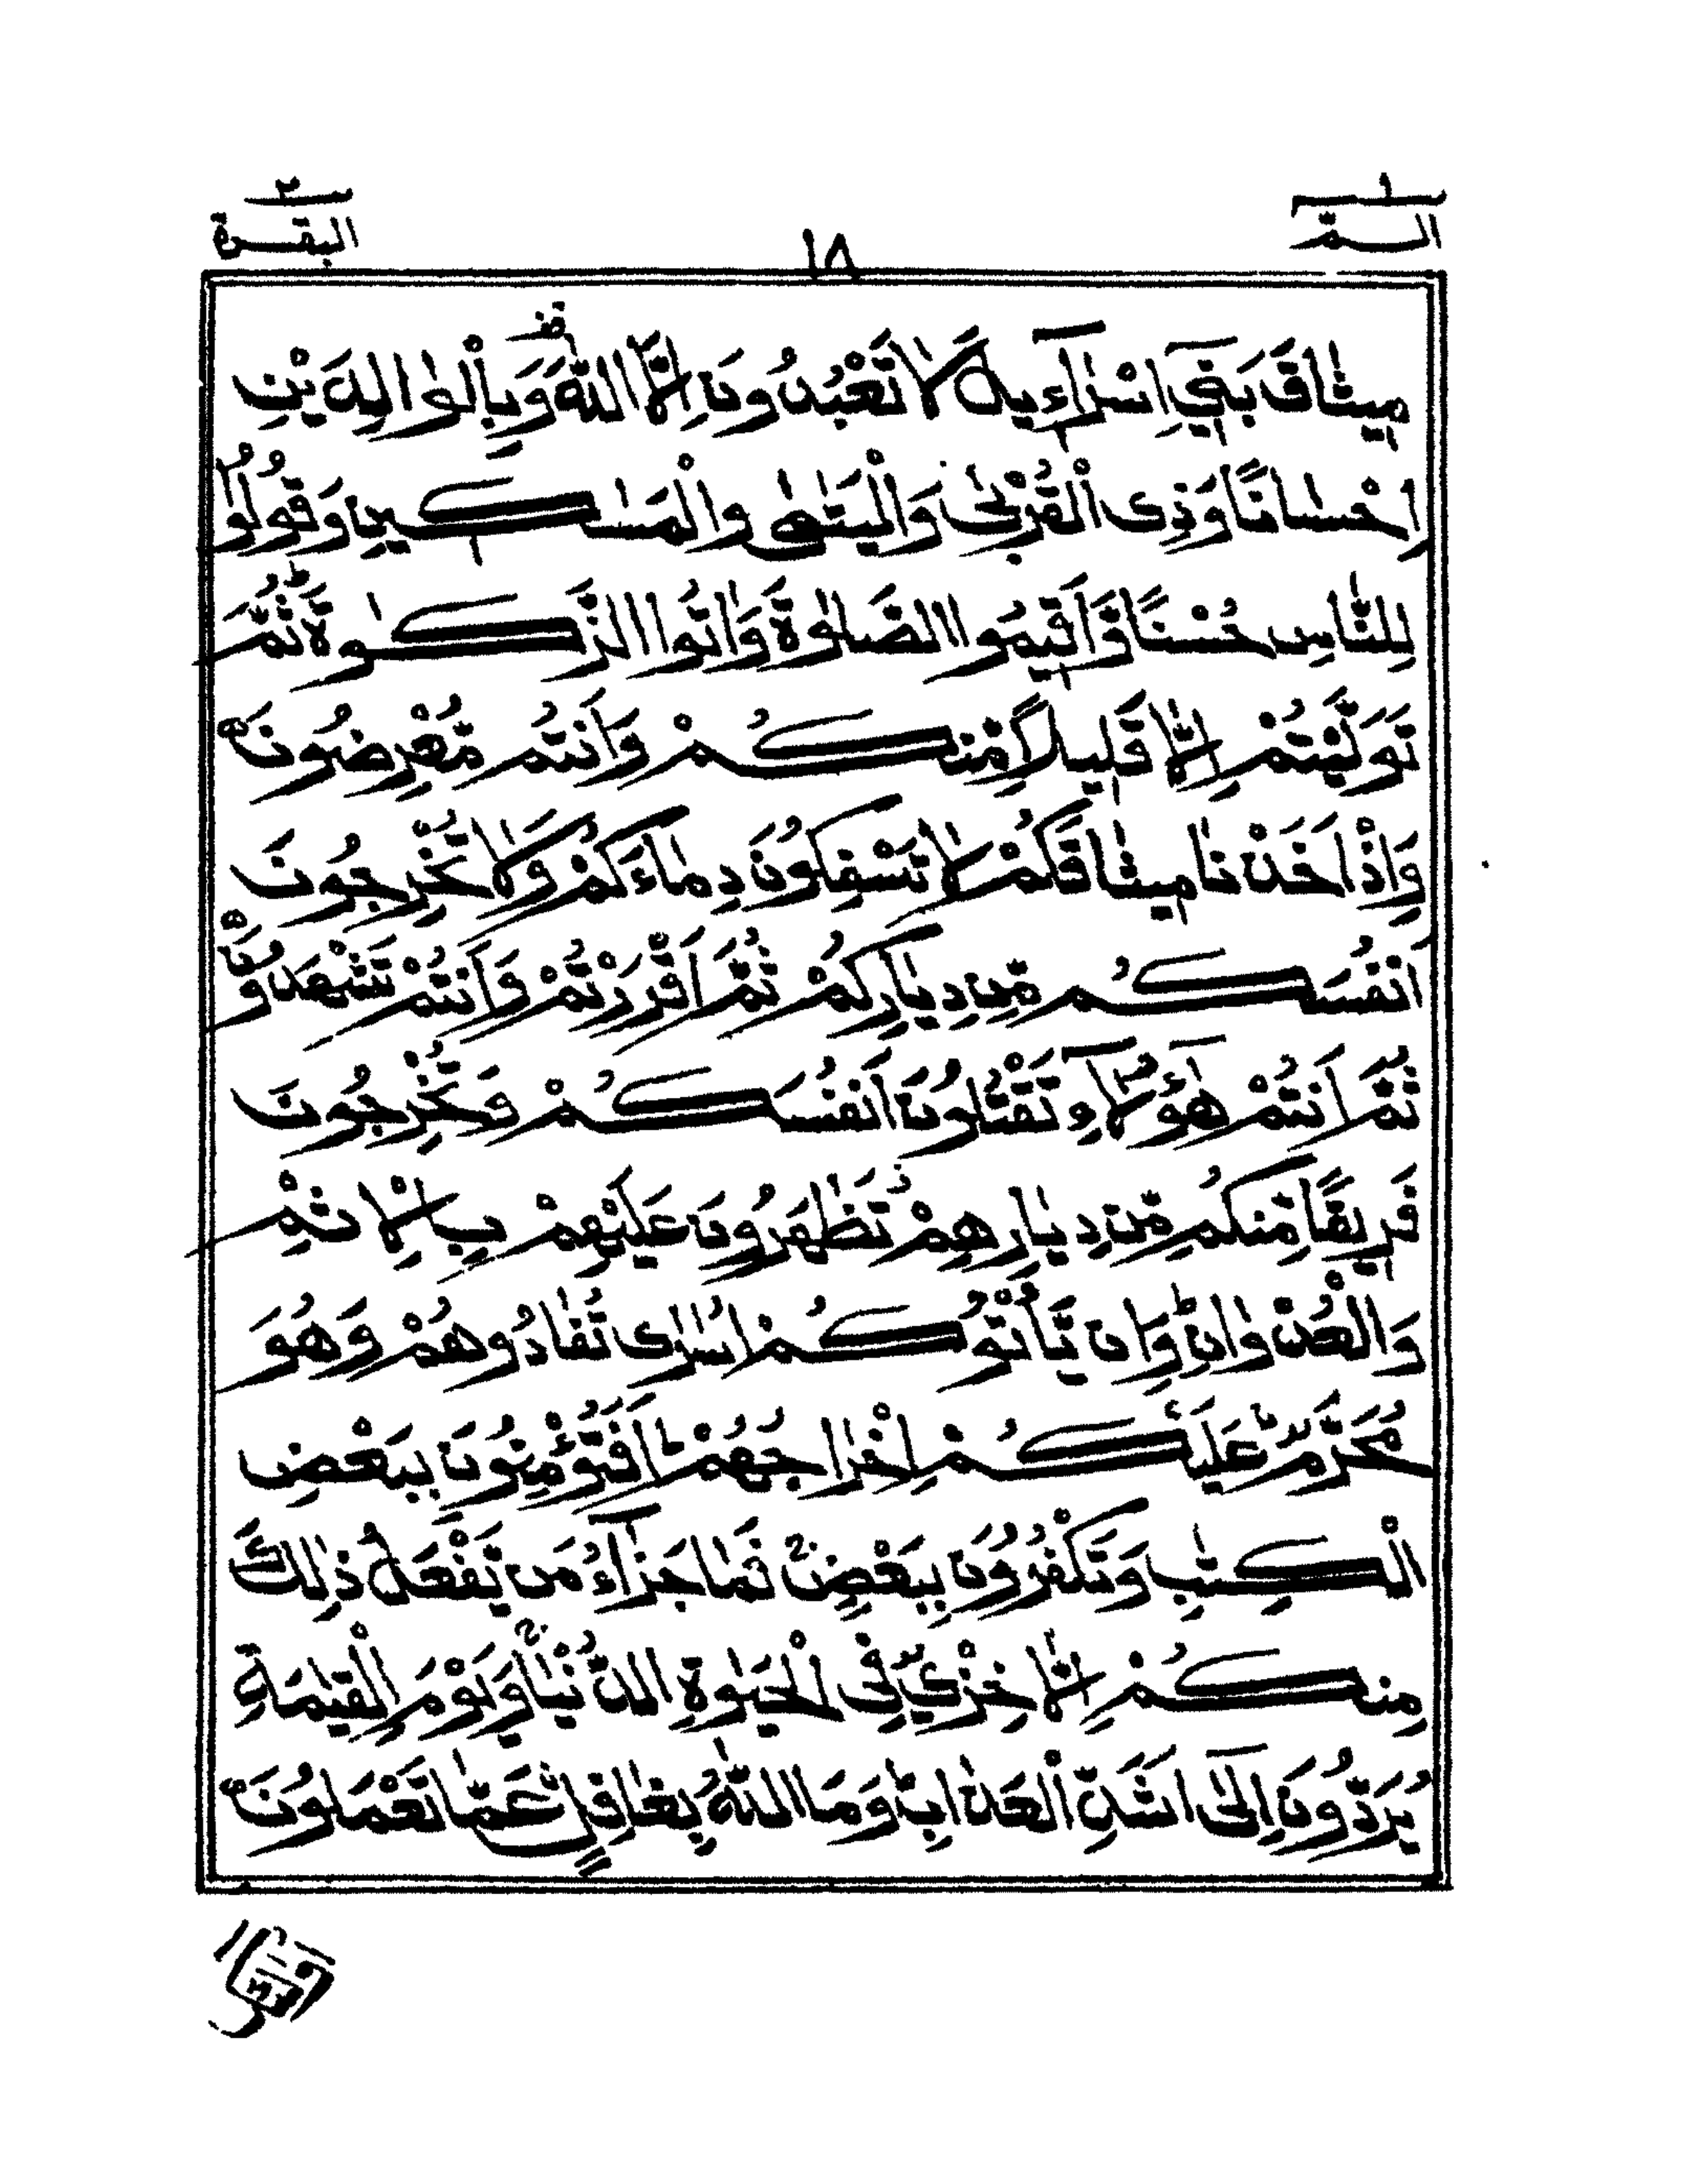 ١
الٓمّٓ
١٨
٢
البقرة
مِيثَاقَ بَنِيٓ اِسْرَآءِيلَ لَا تَعْبُدُونَ اِلَّا اللّٰهَ وَبِالْوَالِدَيْنِ
اِحْسَانًا وَّذِى الْقُرْبٰى وَالْيَتٰمٰى وَالْمَسٰكِينِ وَقُولُوْا
لِلنَّاسِ حُسْنًا وَّاَقِيمُوا الصَّلٰوةَ وَاٰتُوا الزَّكٰوةَ ؕ ثُمَّ
تَوَلَّيْتُمْ اِلَّا قَلِيلًا مِّنكُمْ وَاَنتُم مُّعْرِضُونَ
وَاِذْ اَخَذْنَا مِيثَاقَكُمْ لَا تَسْفِكُونَ دِمَاءَكُمْ وَلَا تُخْرِجُونَ
اَنْفُسَكُم مِّن دِيَارِكُمْ ثُمَّ اَقْرَرْتُمْ وَاَنتُمْ تَشْهَدُونَ
ثُمَّ اَنتُمْ هٰٓؤُلَآءِ تَقْتُلُونَ اَنفُسَكُمْ وَتُخْرِجُونَ
فَرِيقًا مِّنكُم مِّن دِيَارِهِمْ تَظٰهَرُونَ عَلَيْهِمْ بِالْاِثْمِ
وَالْعُدْوَانِ ؕ وَاِن يَّاْتُوكُمْ اُسٰرٰى تُفَادُوهُمْ وَهُوَ
مُحَرَّمٌ عَلَيْكُمْ اِخْرَاجُهُمْ ؕ اَفَتُؤْمِنُونَ بِبَعْضِ
الْكِتٰبِ وَتَكْفُرُونَ بِبَعْضٍ ۚ فَمَا جَزَآءُ مَن يَّفْعَلُ ذٰلِكَ
مِنكُمْ اِلَّا خِزْيٌ فِى الْحَيٰوةِ الدُّنْيَا ۚ وَيَوْمَ الْقِيٰمَةِ
يُرَدُّونَ اِلٰٓى اَشَدِّ الْعَذَابِ ؕ وَمَا اللّٰهُ بِغَافِلٍ عَمَّا تَعْمَلُونَ